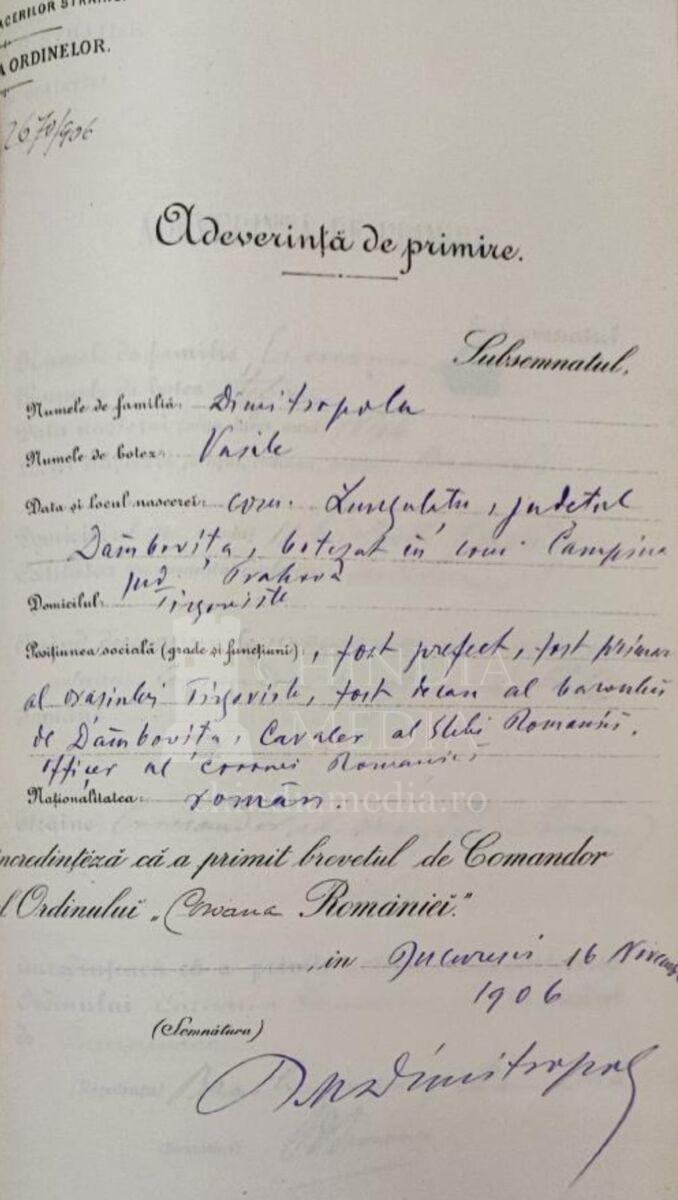 ACERILOR STRĂINE
A ORDINELOR.
2670/906
Adeverință de primire.
Subsemnatul,
Numele de familiă: Dimitropolu
Numele de botez: Vasile
Data și locul nascereĭ: com. Lungulétu, județul
Dâmbovița, botezat în com. Câmpina
jud. Prahova
Domiciliul: Tirgoviste
Posițiunea socială (grade și funcțiuni): , fost prefect, fost primar
al orașului Tirgoviste, fost decan al baroului
de Dâmbovița, Cavaler al Stelei României,
Officer al Coroanei României
Naționalitatea: român.
încredințéză că a primit brevetul de Comandor
l Ordinuluĭ „Coroana Românieĭ."
, in Bucuresci 16 Noiemb
1906
(Semnătura)
Dimitropol
CHINDIA
MEDIA
chindiamedia.ro